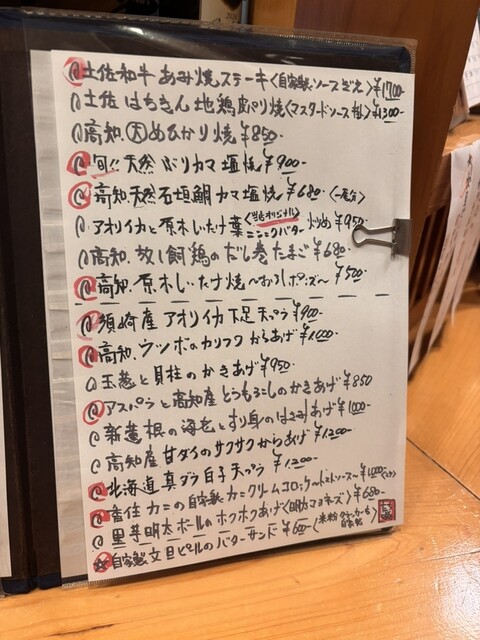 土佐和牛 あみ焼ステーキ〈自家製ソース ぞえ〉¥1700-
土佐はちきん地鶏皮パリ焼〈マスタードソース掛〉¥1300-
高知.大めひかり焼¥850-
旬!! 天然ぶりカマ塩焼¥900-
高知.天然石垣鯛カマ塩焼¥680-
アオリイカと原木しいたけ〈当店オリジナル〉ニンニクバター炒め¥950-
高知.放し飼鶏のだし巻たまご¥680-
高知.原木しいたけ焼〜おろしポン酢〜¥500-
須崎産アオリイカ下足天ぷら¥900-
高知.ウツボのカリフワからあげ¥1000-
玉葱と貝柱のかきあげ¥950-
アスパラと高知産とうもろこしのかきあげ¥850
新蓮根の海老とすり身のはさみあげ¥1000-
高知産甘ダイのサクサクからあげ¥1200-
北海道真ダラ白子天ぷら¥1200-
カニの自家製カニクリームコロッケ〜トマトソース〜¥1000
里芋明太ボールのホクホクあげ〈明太マヨネーズ〉¥680-
自家製文旦ピールのバターサンド¥600-